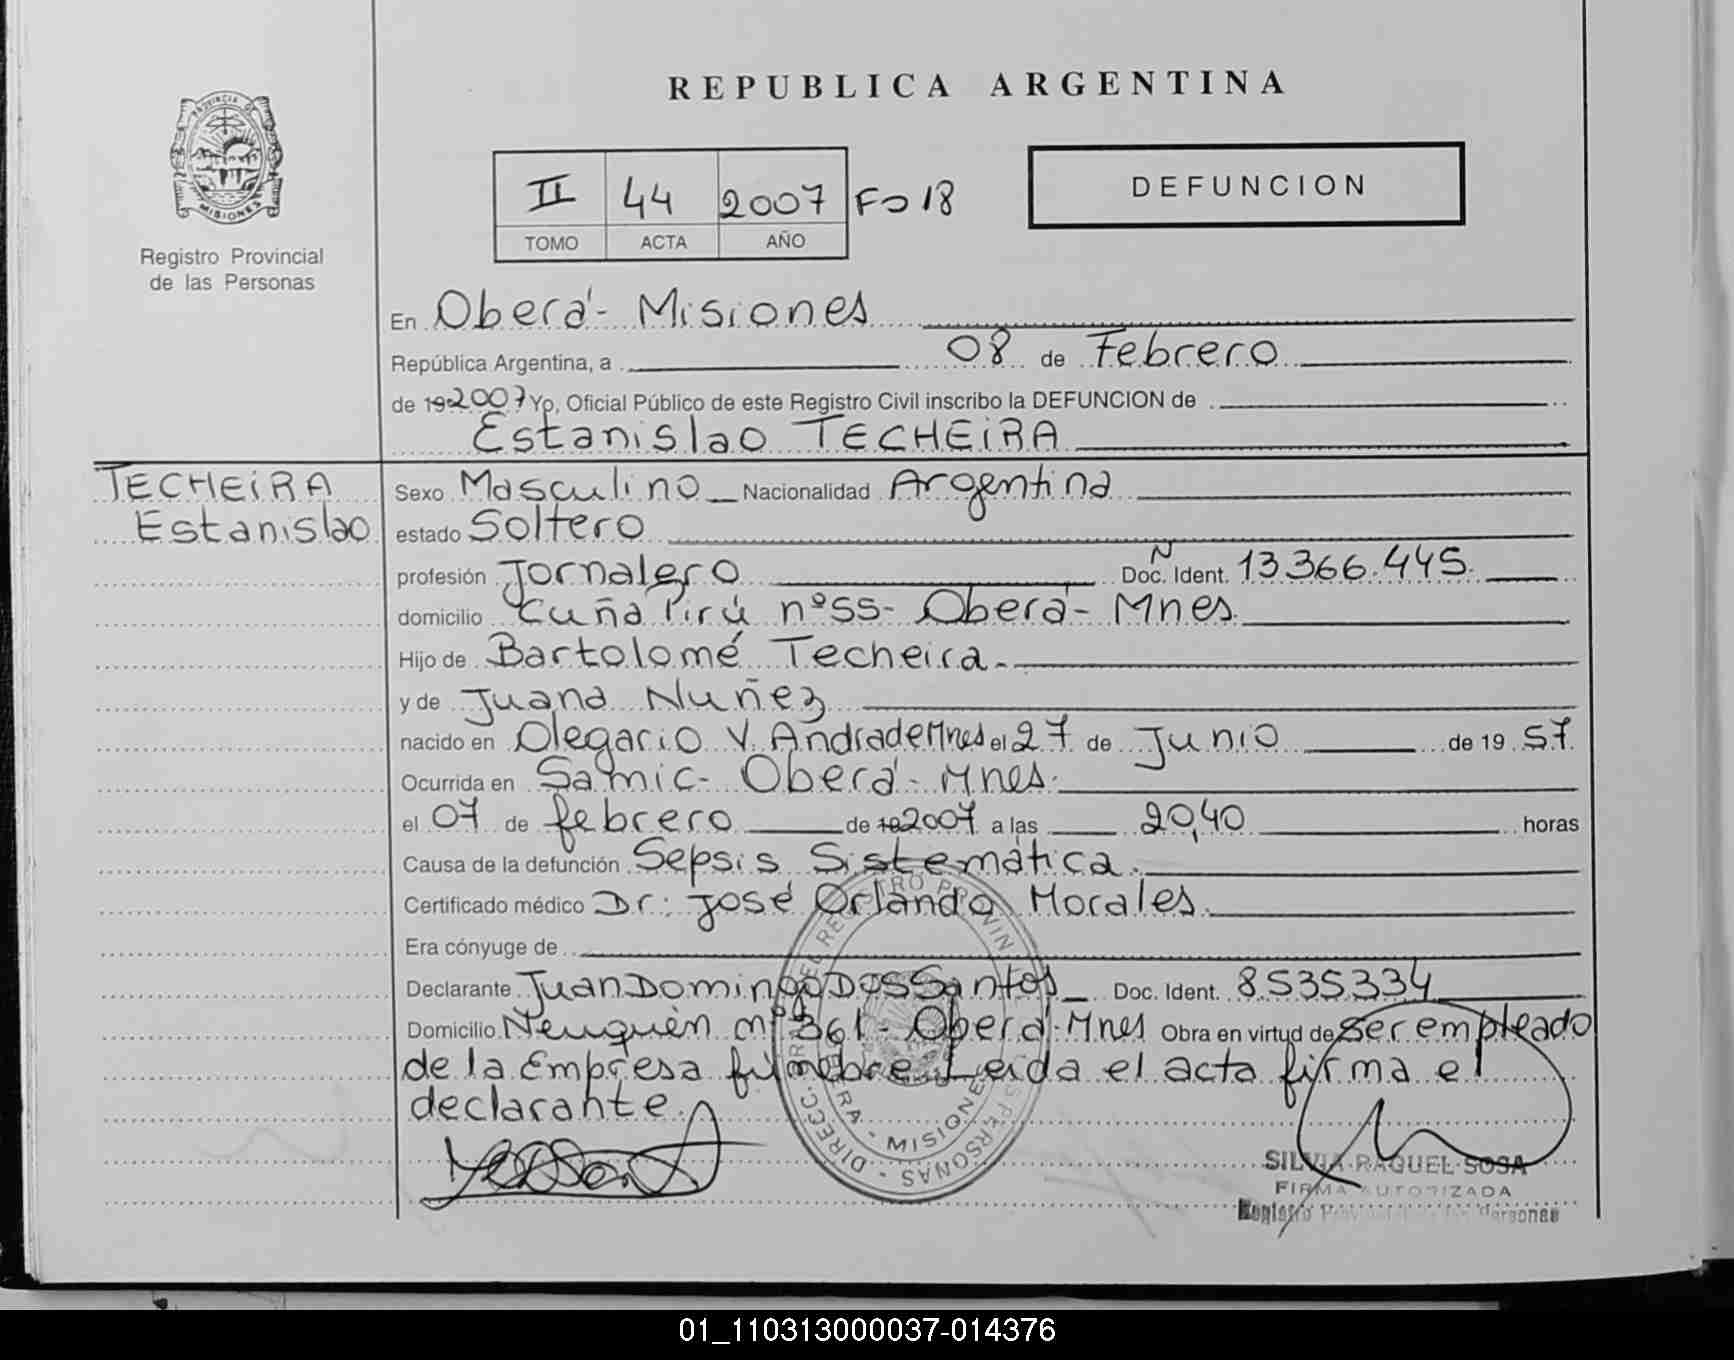 REPUBLICA ARGENTINA
PROVINCIA DE
MISIONES
Registro Provincial
de las Personas
II 44 2007 Fo 18
TOMO ACTA AÑO
DEFUNCION
En Oberá - Misiones
República Argentina, a 08 de Febrero
de 19 2007 Yo, Oficial Público de este Registro Civil inscribo la DEFUNCION de
Estanislao TECHEiRA
TECHEiRA
Estanislao
Sexo Masculino Nacionalidad Argentina
estado Soltero
profesión Jornalero Doc. Ident. N 13.366.445.
domicilio Cuña Pirú nº 55 - Oberá - Mnes.
Hijo de Bartolomé Techeira.
y de Juana Nuñez
nacido en Olegario V. Andrade Mnes el 27 de Junio de 19 57.
Ocurrida en Samic - Oberá - Mnes.
el 07 de febrero de 19 2007 a las 20,40 horas
Causa de la defunción Sepsis Sistemática.
Certificado médico Dr: José Orlando Morales.
Era cónyuge de
Declarante Juan Domingo Dos Santos Doc. Ident. 8535334
Domicilio Neuquén nº 361 - Oberá - Mnes Obra en virtud de ser empleado
de la Empresa fúnebre Leida el acta firma el
declarante.
MISIONES
SILVIA RAQUEL SOSA
FIRMA AUTORIZADA
Registro Provincial de las Personas
01_110313000037-014376